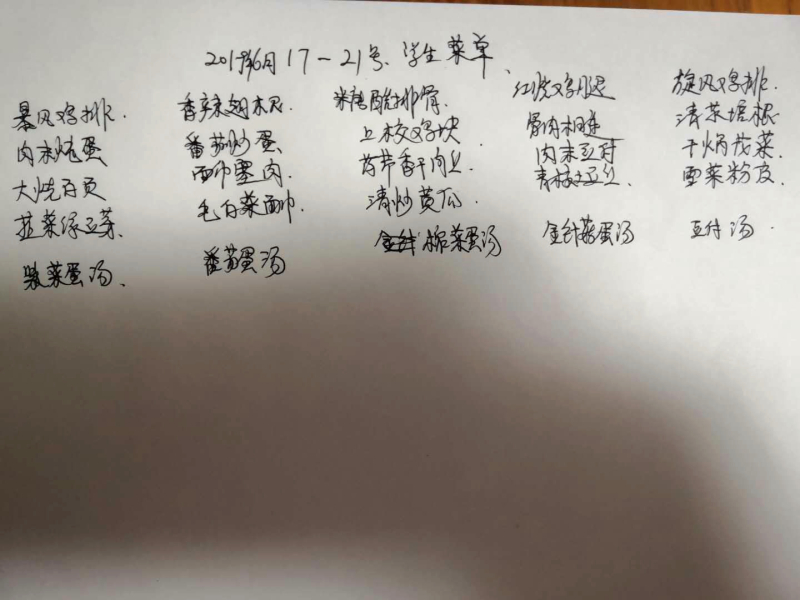 2019年6月17-21号、学生菜单、
暴风鸡排.
肉末炖蛋
大烧百页
韭菜绿豆芽.
紫菜蛋汤、
香辣翅木
番茄炒蛋
面巾塞肉.
毛白菜面巾
番茄蛋汤
米糖醋排骨.
上校鸡块
芹香干肉丝
清炒黄瓜
榨菜蛋汤
红烧鸡腿
骨肉相连
肉末豆付
青椒土豆丝
金针菇蛋汤
旋风鸡排.
干焖茂菜
雪菜粉皮
豆付汤.